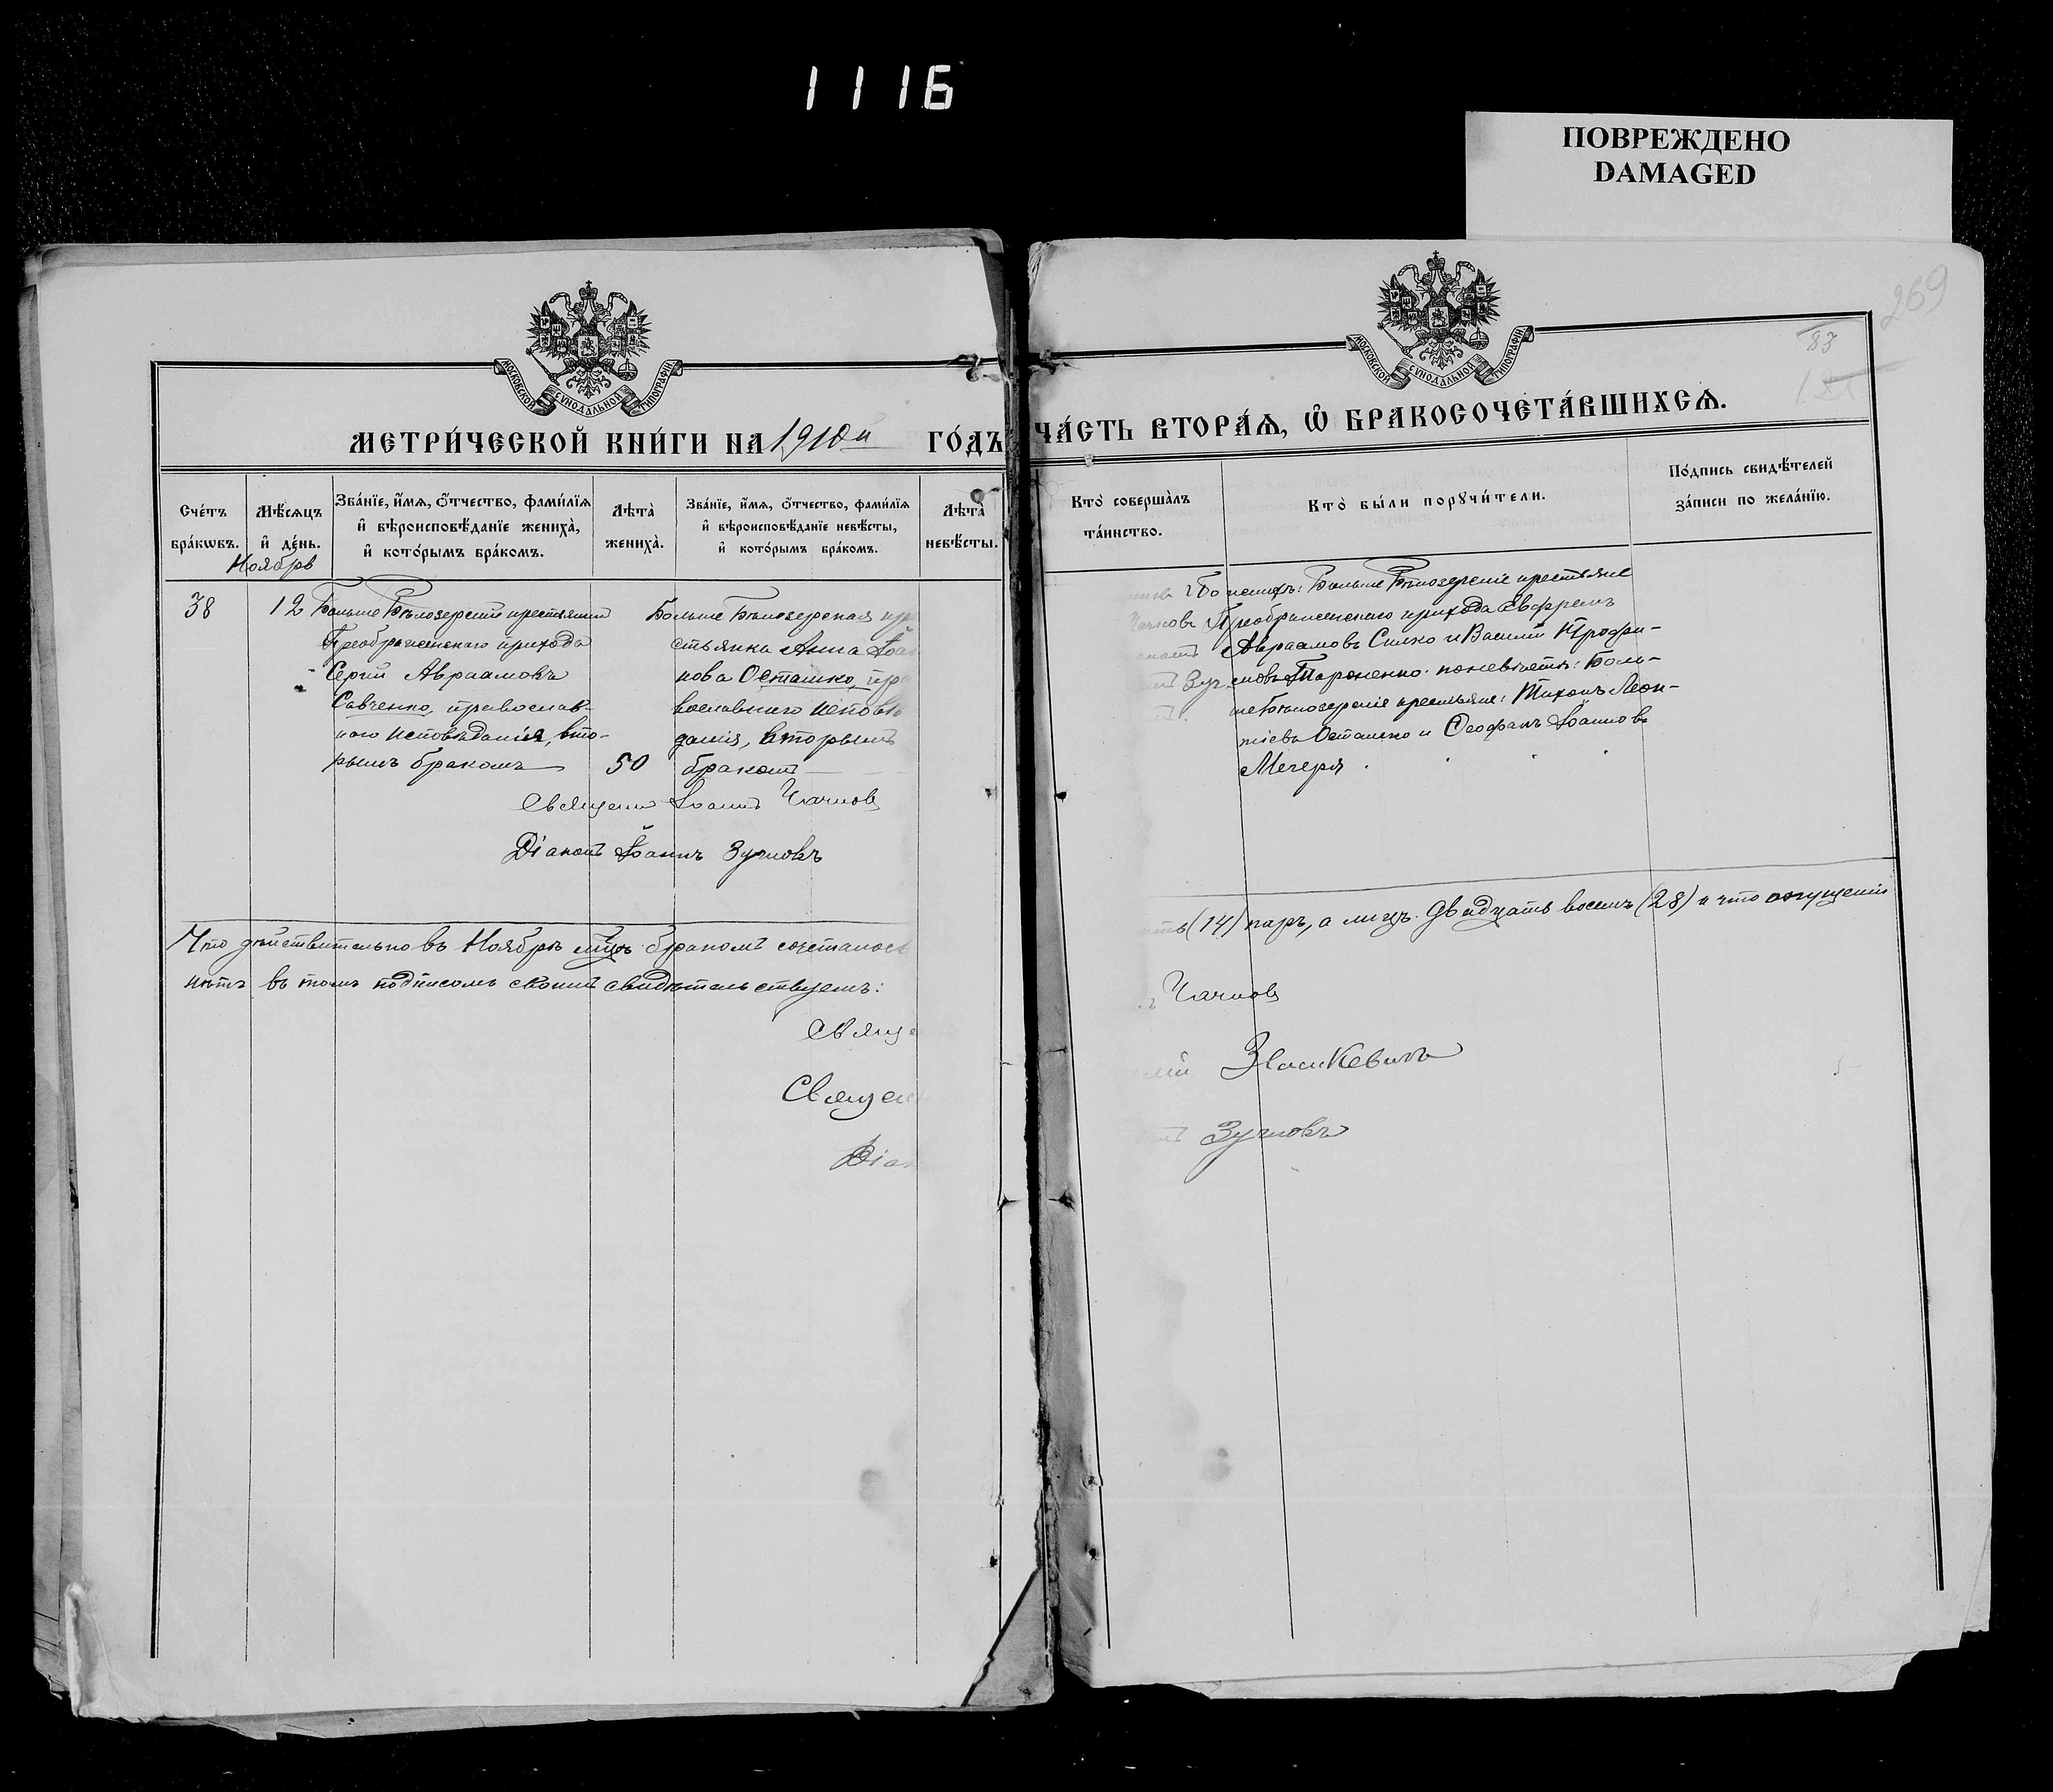 1116
ПОВРЕЖДЕНО
DAMAGED
269
83
МОСКОВСКОЙ СѴНОДАЛЬНОЙ ТИПОГРАФІИ
МОСКОВСКОЙ СѴНОДАЛЬНОЙ ТИПОГРАФІИ
МЕТРИ́ЧЕСКОЙ КНИ́ГИ НА 1910й ГО́ДЪ
ЧА́СТЬ ВТОРА́Ѧ, Ѽ БРАКОСОЧЕТА́ВШИХСѦ.
Сче́тъ
бра́кѡвъ.
Мѣ́сѧцъ
и҆ де́нь.
Зва́нїе, и҆́мѧ, ѻ҆́тчество, фами́лїѧ
и҆ вѣроисповѣ́данїе жениха̀,
и҆ кото́рымъ бра́комъ.
Лѣта̀
жениха̀.
Зва́нїе, и҆́мѧ, ѻ҆́тчество, фами́лїѧ
и҆ вѣроисповѣ́данїе невѣ́сты,
и҆ кото́рымъ бра́комъ.
Лѣта̀
невѣ́сты.
Кто̀ соверша̀лъ
та́инство.
Кто̀ бы́ли порꙋчи́тели.
По́дпись свидѣ́телей
за́писи по жела́нїю.
Ноябрь
38
12
Больше Бѣлозерскій крестьянинъ
Преображенскаго прихода
Сергій Авраамовъ
Савченко, православ-
наго исповѣданія, вто-
рымъ бракомъ
50
Больше Бѣлозерская кре
стьянка Анна Іоан
нова Осташко, пра
вославнаго исповѣ
данія, вторымъ
бракомъ
Священ Іоаннъ Чачковъ
Діаконъ Іоаннъ Зучковъ
По женихѣ: Больше Бѣлозерскіе крестьяне
Преображенскаго прихода Евфремъ
Авраамовъ Силко и Василій Трофи-
мовъ Тароненко. по невѣстѣ: Боль-
шебѣлозерскіе крестьяне: Тихонъ Леон-
тіевъ Осташко и Ѳеофанъ Іоанновъ
Мечеря
Что дѣйствительно въ Ноябрѣ м-цѣ бракомъ сочеталось
ть (14) паръ, а лицъ двадцать восемь (28) и что опущенія
нѣтъ въ томъ подписомъ своимъ свидѣтельствуемъ:
Свяще
Чачковъ
Священ
Зучковъ
Діак